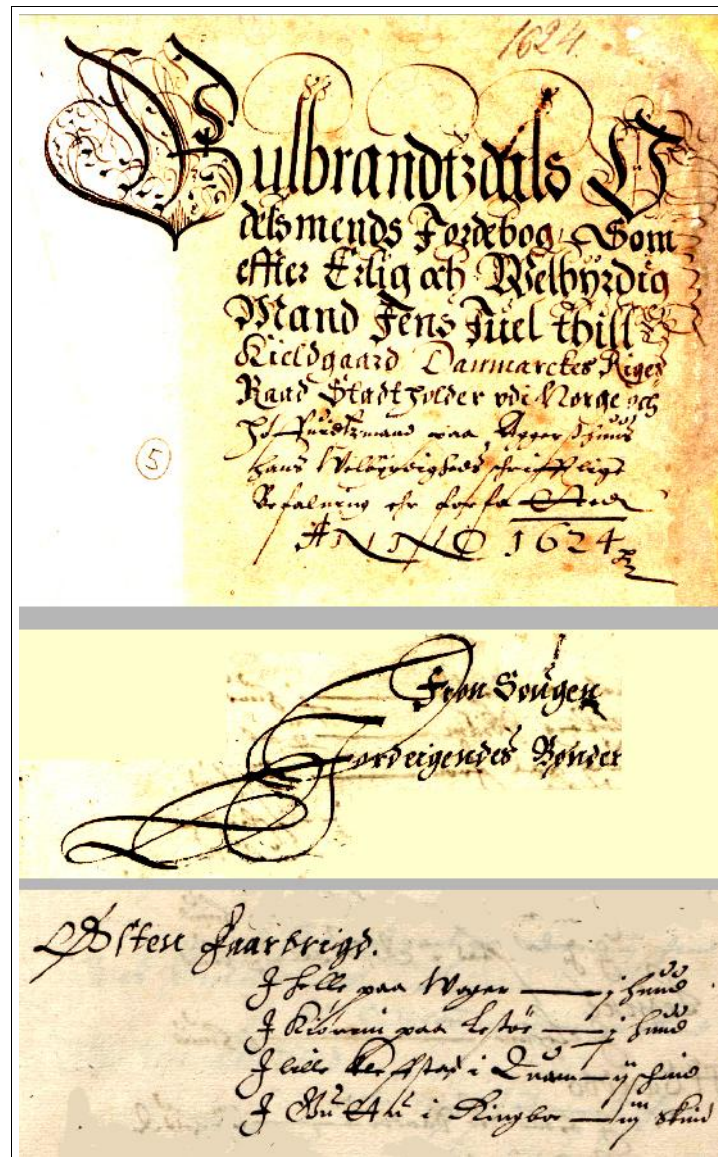 1624.
Gulbrandtzdals O
delsmends Jordebog Som
effter Erlig och Welbyrdig
Mand Jens Juel thill
Kieldgaard Danmarckes Riges
Raad Stadtholder vdi Norge och
paa Aggershuus
hans Welbyrdigheds schrifftlige
Befalning ehr forfatted
ANNO 1624
5
Fron Sougen
Jordeigendes Bønder
Østen Faarbrigd.
J Helle paa Wager — j huud
J paa Lesøe — j huud
J lille Kleffstad i Quam — ij schind
J i Ringboe — iij skind